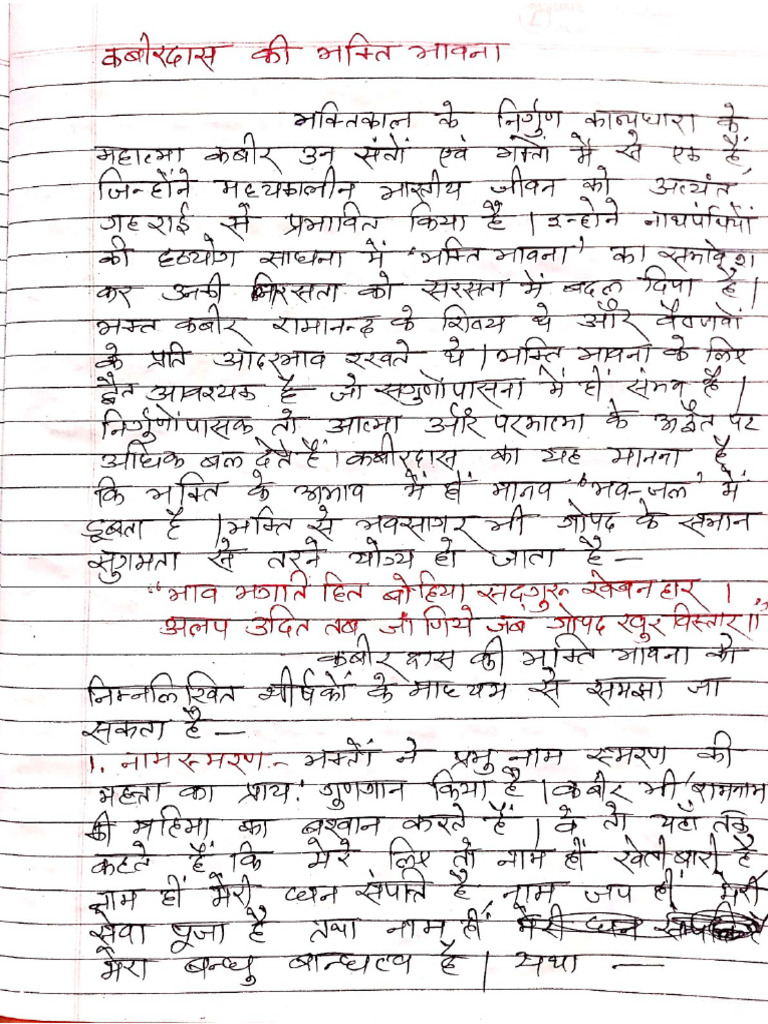 कबीरदास की भक्ति भावना
भक्तिकाल के निर्गुण काव्यधारा के
महात्मा कबीर उन संतों एवं भक्तों में से एक हैं,
जिन्होंने मध्यकालीन भारतीय जीवन को अत्यंत
गहराई से प्रभावित किया है। इन्होंने नाथपंथियों
की हठयोग साधना में 'भक्ति भावना' का समावेश
कर उनकी निरसता को सरसता में बदल दिया है।
भक्त कबीर रामानन्द के शिष्य थे और वैष्णवों
के प्रति आदरभाव रखते थे। भक्ति भावना के लिए
द्वैत आवश्यक है जो सगुणोपासना में ही संभव है।
निर्गुणोंपासक तो आत्मा और परमात्मा के अद्वैत पर
अधिक बल देते हैं। कबीरदास का यह मानना है
कि भक्ति के अभाव में हीं मानव 'भव-जल' में
डूबता है। भक्ति से भवसागर भी गोपद के समान
सुगमता से तरने योग्य हो जाता है —
"भाव भगति हित बोहिया सदगुरु खेबनहार।
अलप उदित तब जाँणिये जब गोपद खुर विस्तार॥"
कबीरदास की भक्ति भावना को
निम्नलिखित शीर्षकों के माध्यम से समझा जा
सकता है —
1. नाम स्मरण:- भक्तों ने प्रभु नाम स्मरण की
महत्ता का प्रायः गुणगान किया है। कबीर भी 'रामनाम'
की महिमा का बखान करते हैं। वे तो यहाँ तक
कहते हैं कि मेरे लिए तो नाम हीं खेती बारी है
नाम हीं मेरी धन संपत्ति है, नाम जप हीं मेरी
सेवा पूजा है तथा नाम हीं
मेरा बन्धु बान्धत्व है। यथा —